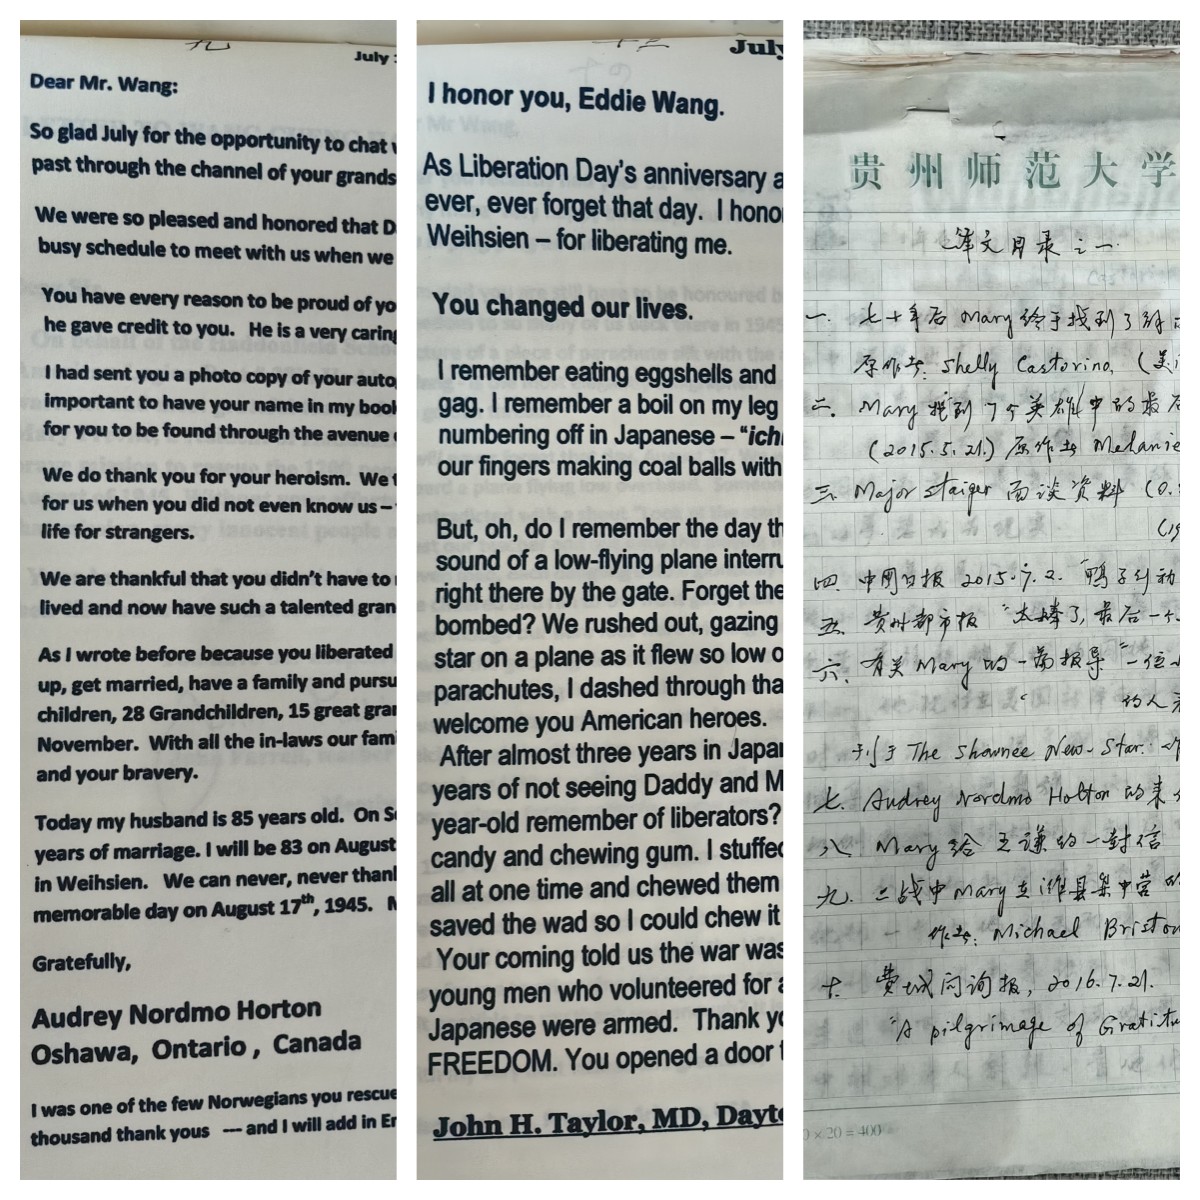 九
July
Dear Mr. Wang:
So glad July for the opportunity to chat
past through the channel of your grands
We were so pleased and honored that D
busy schedule to meet with us when we
You have every reason to be proud of yo
he gave credit to you. He is a very caring
I had sent you a photo copy of your auto
important to have your name in my book
for you to be found through the avenue
We do thank you for your heroism. We
for us when you did not even know us –
life for strangers.
We are thankful that you didn't have to
lived and now have such a talented gran
As I wrote before because you liberated
up, get married, have a family and pursu
children, 28 Grandchildren, 15 great gra
November. With all the in-laws our fam
and your bravery.
Today my husband is 85 years old. On S
years of marriage. I will be 83 on August
in Weihsien. We can never, never thank
memorable day on August 17th, 1945. M
Gratefully,
Audrey Nordmo Horton
Oshawa, Ontario , Canada
I was one of the few Norwegians you rescue
thousand thank yous --- and I will add in En
July
I honor you, Eddie Wang.
As Liberation Day's anniversary a
ever, ever forget that day. I hono
Weihsien – for liberating me.
You changed our lives.
I remember eating eggshells and
gag. I remember a boil on my leg
numbering off in Japanese – "ich
our fingers making coal balls with
But, oh, do I remember the day th
sound of a low-flying plane interru
right there by the gate. Forget the
bombed? We rushed out, gazing
star on a plane as it flew so low o
parachutes, I dashed through tha
welcome you American heroes.
After almost three years in Japan
years of not seeing Daddy and M
year-old remember of liberators?
candy and chewing gum. I stuffed
all at one time and chewed them
saved the wad so I could chew it
Your coming told us the war was
young men who volunteered for a
Japanese were armed. Thank yo
FREEDOM. You opened a door t
John H. Taylor, MD, Dayto
贵州师范大学
译文目录之一
一. 七十年后Mary终于找到了
原作者: Shelly Castorino, (美
二. Mary找到了7个英雄中的最后
(2015.5.21.) 原作者 Melanie
三. Major Staiger 面谈资料 (0.
(19
四. 中国日报 2015.9.2. "鸭子行动
五. 贵州都市报 "太棒了, 最后一个
六. 有关Mary的一篇报导 "一位
的人
刊于 The Shawnee New-Star.
七. Audrey Nordmo Holton的来
八 Mary给王谦的一封信
九. 二战中Mary在潍县集中营的
作者: Michael Bristow
十. 费城问询报, 2016.7.21.
"A pilgrimage of Gratitu
0×20=400